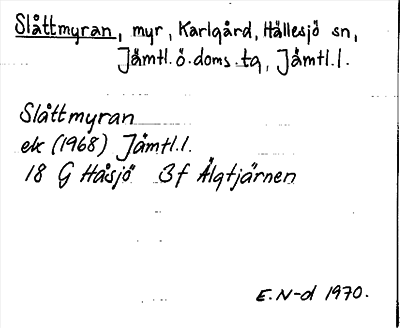 Slåttmyran, myr, Karlgård, Hällesjö sn,
Jämtl.ö.doms.tg, Jämtl.l.
Slåttmyran
ek (1968) Jämtl.l.
18 G Håsjö 3f Älgtjärnen
E.N-d 1970.